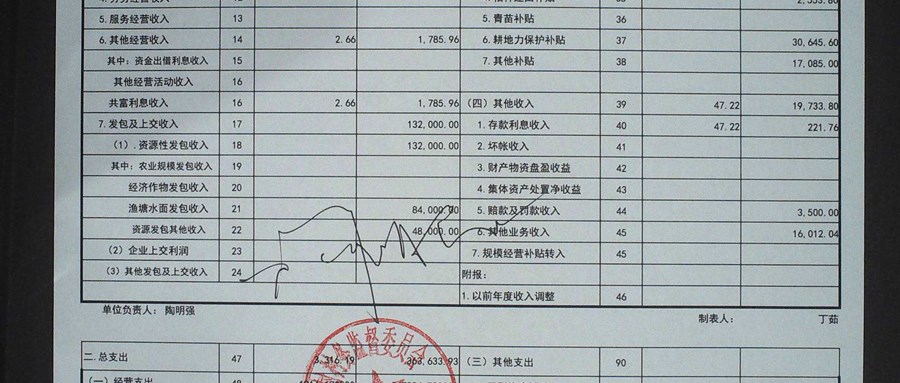 5. 服务经营收入 13 5. 青苗补贴 36
6. 其他经营收入 14 2.66 1,785.96 6. 耕地力保护补贴 37 30,645.60
其中: 资金出借利息收入 15 7. 其他补贴 38 17,085.00
其他经营活动收入 16
共富利息收入 16 2.66 1,785.96 (四) 其他收入 39 47.22 19,733.80
7. 发包及上交收入 17 132,000.00 1. 存款利息收入 40 47.22 221.76
(1) . 资源性发包收入 18 132,000.00 2. 坏帐收入 41
其中: 农业规模发包收入 19 3. 财产物资盘盈收益 42
经济作物发包收入 20 4. 集体资产处置净收益 43
渔塘水面发包收入 21 84,000.00 5. 赔款及罚款收入 44 3,500.00
资源发包其他收入 22 48,000.00 6. 其他业务收入 45 16,012.04
(2) 企业上交利润 23 7. 规模经营补贴转入 45
(3) 其他发包及上交收入 24 附报:
1. 以前年度收入调整 46
单位负责人: 陶明强 制表人: 丁茹
监督委员会
二. 总支出 47 3,316.19 363,633.93 (三) 其他支出 90
(一) 经营支出 48